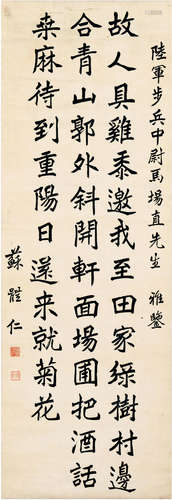 陸軍步兵中尉馬場直先生 雅鑒
故人具雞黍邀我至田家綠樹村邊
合青山郭外斜開軒面場圃把酒話
桒麻待到重陽日還来就菊花
蘇體仁